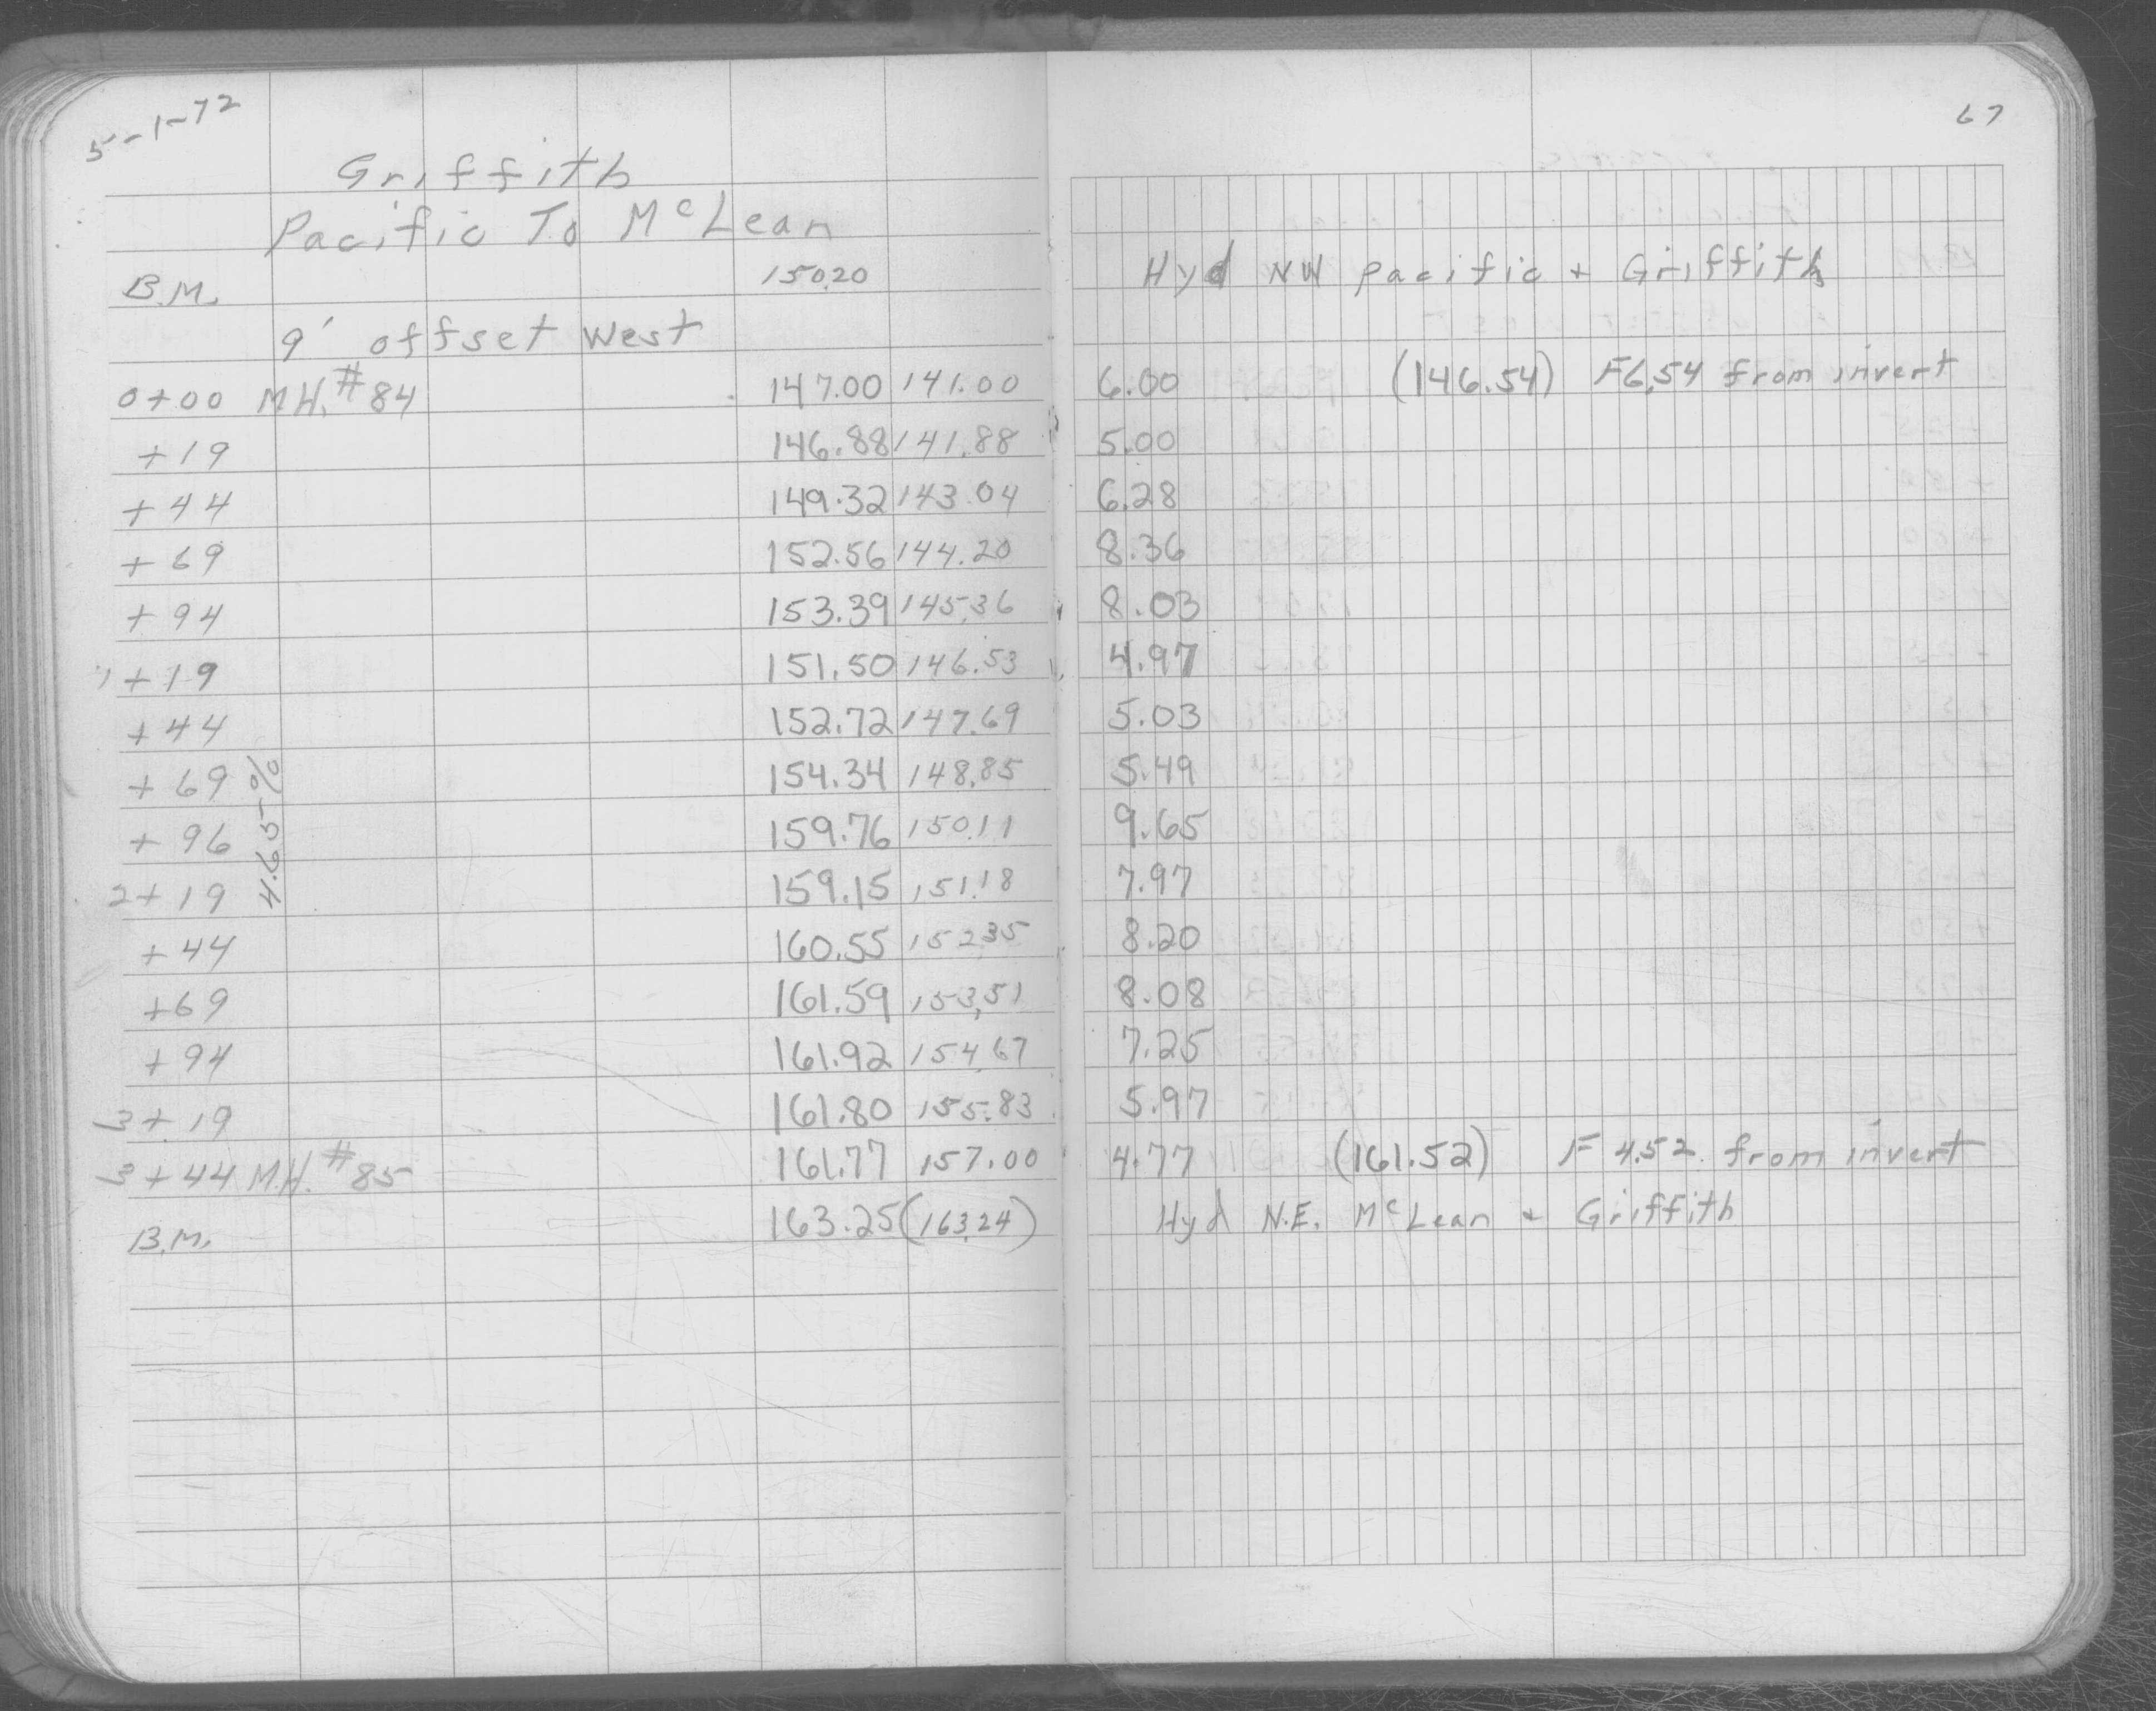 5-1-72
67
Griffith
Pacific To McLean
B.M. 150.20 Hyd NW Pacific + Griffith
9' offset West
0+00 M.H. #84 147.00 141.00 6.00 (146.54) F6.54 from invert
+19 146.88 141.88 5.00
+44 149.32 143.04 6.28
+69 152.56 144.20 8.36
+94 153.39 145.36 8.03
1+19 151.50 146.53 4.97
+44 152.72 147.69 5.03
+69 154.34 148.85 5.49
+96 159.76 150.11 9.65
4.65%
2+19 159.15 151.18 7.97
+44 160.55 152.35 8.20
+69 161.59 153.51 8.08
+94 161.92 154.67 7.25
3+19 161.80 155.83 5.97
3+44 M.H. #85 161.77 157.00 4.77 (161.52) F 4.52 from invert
B.M. 163.25 (163.24) Hyd N.E. McLean + Griffith